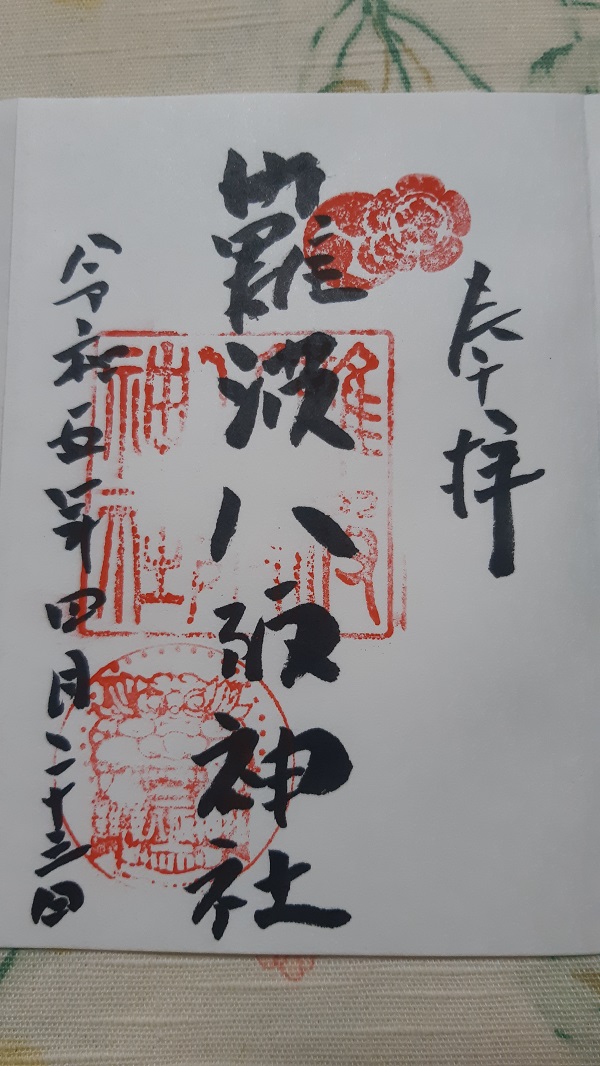 奉拝
難波八阪神社
令和五年四月二十三日
神社